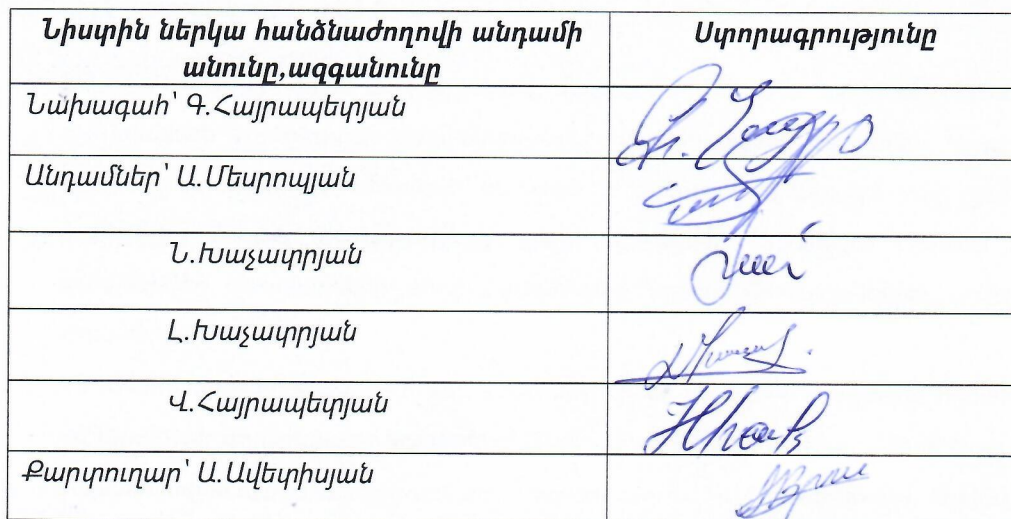 Նիստին ներկա հանձնաժողովի անդամի
անունը,ազգանունը
Ստորագրությունը
Նախագահ՝ Գ.Հայրապետյան
Անդամներ՝ Ա.Մեսրոպյան
Ն.Խաչատրյան
Լ.Խաչատրյան
Վ.Հայրապետյան
Քարտուղար՝ Ա.Ավետիսյան